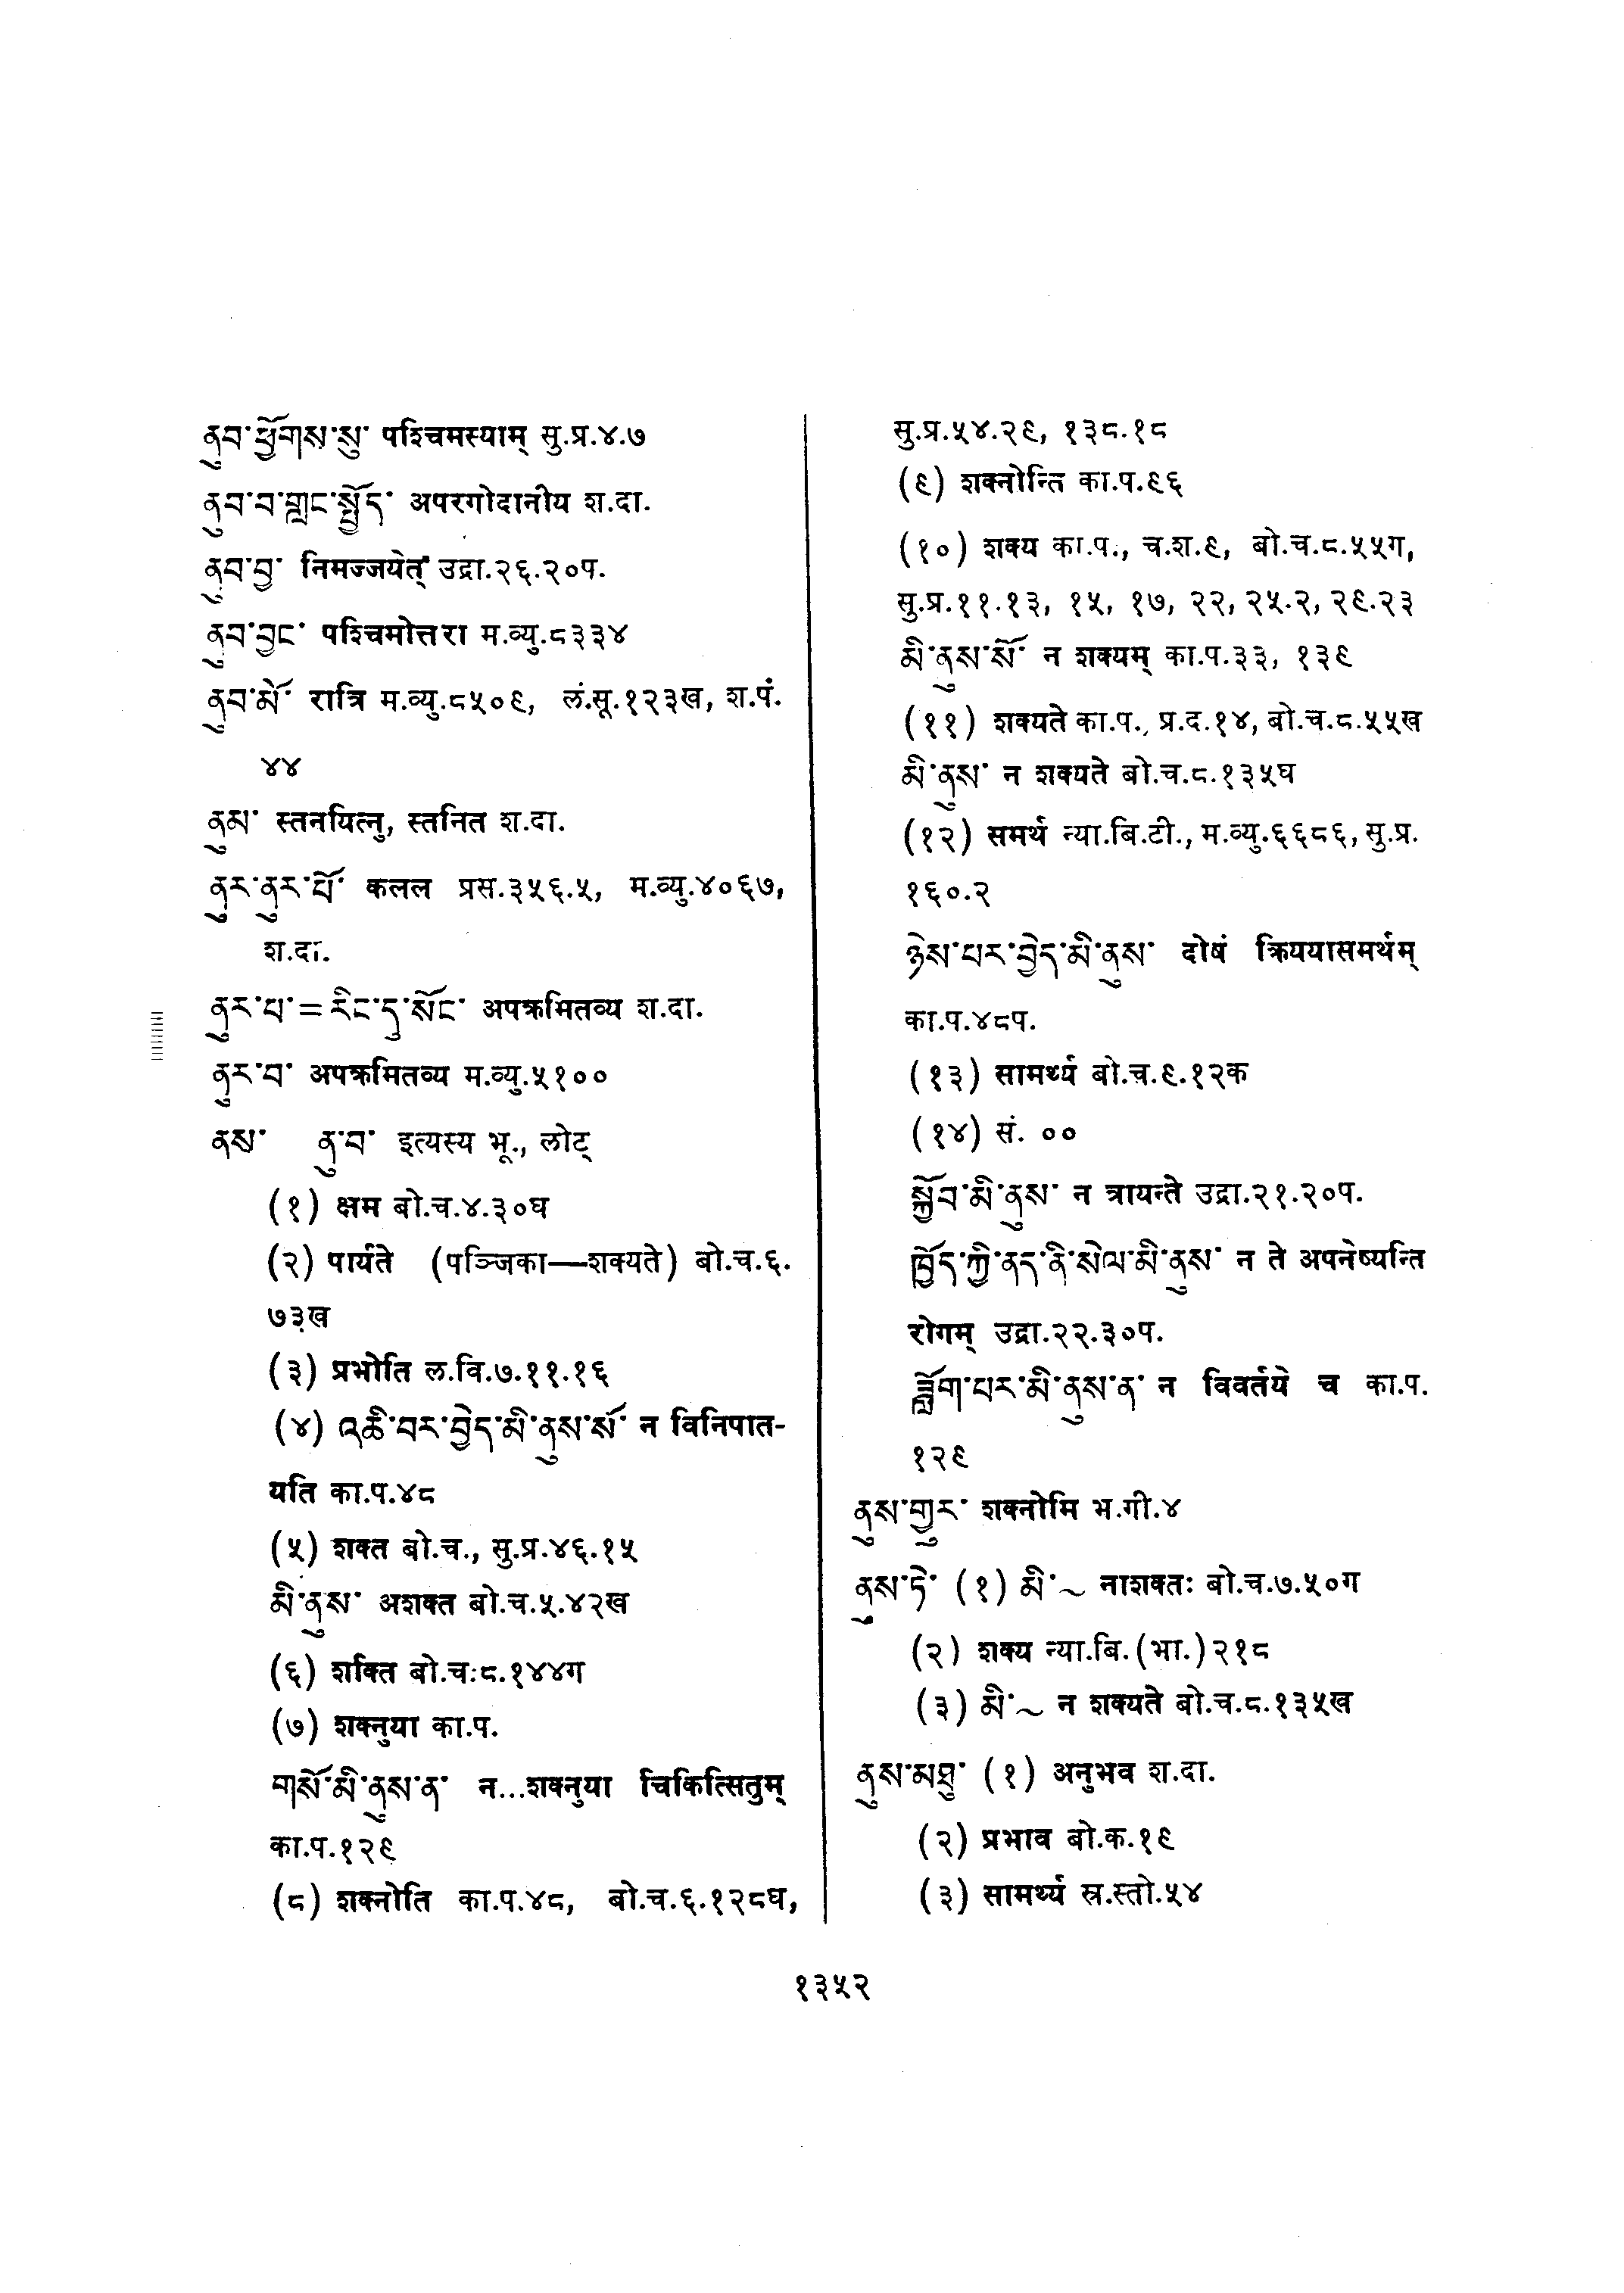 ནུབ་ཕྱོགས་སུ་ पश्चिमस्याम् सु.प्र.४.७
ནུབ་བ་གླང་སྤྱོད་ अपरगोदानीय श.दा.
ནུབ་བྱ་ निमज्जयेत् उद्रा.२६.२०प.
ནུབ་བྱང་ पश्चिमोत्तरा म.व्यु.८३३४
ནུབ་མོ་ रात्रि म.व्यु.८५०९, लं.सू.१२३ख, श.पं.
४४
ནུམ་ स्तनयित्नु, स्तनित श.दा.
ནུར་ནུར་པོ་ कलल प्रस.३५६.५, म.व्यु.४०६७,
श.दा.
ནུར་པ་=རིང་དུ་སོང་ अपक्रमितव्य श.दा.
ནུར་བ་ अपक्रमितव्य म.व्यु.५१००
ནས་ ནུ་བ་ इत्यस्य भू., लोट्
(१) क्षम बो.च.४.३०घ
(२) पार्यते (पञ्जिका—शक्यते) बो.च.६.
७३ख
(३) प्रभोति ल.वि.७.११.१६
(४) འཆི་བར་བྱེད་མི་ནུས་སོ་ न विनिपात-
यति का.प.४८
(५) शक्त बो.च., सु.प्र.४६.१५
མི་ནུས་ अशक्त बो.च.५.४२ख
(६) शक्ति बो.च.८.१४४ग
(७) शक्नुया का.प.
གསོ་མི་ནུས་ན་ न...शक्नुया चिकित्सितुम्
का.प.१२९
(८) शक्नोति का.प.४८, बो.च.६.१२८घ,
सु.प्र.५४.२९, १३८.१८
(९) शक्नोन्ति का.प.९६
(१०) शक्य का.प., च.श.९, बो.च.८.५५ग,
सु.प्र.११.१३, १५, १७, २२, २५.२, २९.२३
མི་ནུས་སོ་ न शक्यम् का.प.३३, १३९
(११) शक्यते का.प., प्र.द.१४, बो.च.८.५५ख
མི་ནུས་ न शक्यते बो.च.८.१३५घ
(१२) समर्थ न्या.बि.टी., म.व्यु.६६८६, सु.प्र.
१६०.२
ཉེས་པར་བྱེད་མི་ནུས་ दोषं क्रिययासमर्थम्
का.प.४८प.
(१३) सामर्थ्य बो.च.९.१२क
(१४) सं. ००
སྐྱོབ་མི་ནུས་ न त्रायन्ते उद्रा.२१.२०प.
ཁྱོད་ཀྱི་ནད་ནི་སེལ་མི་ནུས་ न ते अपनेष्यन्ति
रोगम् उद्रा.२२.३०प.
ཟློག་པར་མི་ནུས་ན་ न विवर्तये च का.प.
१२९
ནུས་གྱུར་ शक्नोमि भ.गी.४
ནུས་ཏེ་ (१) མི་~ नाशक्तः बो.च.७.५०ग
(२) शक्य न्या.बि.(भा.)२१८
(३) མི་~ न शक्यते बो.च.८.१३५ख
ནུས་མཐུ་ (१) अनुभव श.दा.
(२) प्रभाव बो.क.१९
(३) सामर्थ्य स्र.स्तो.५४
१३५२